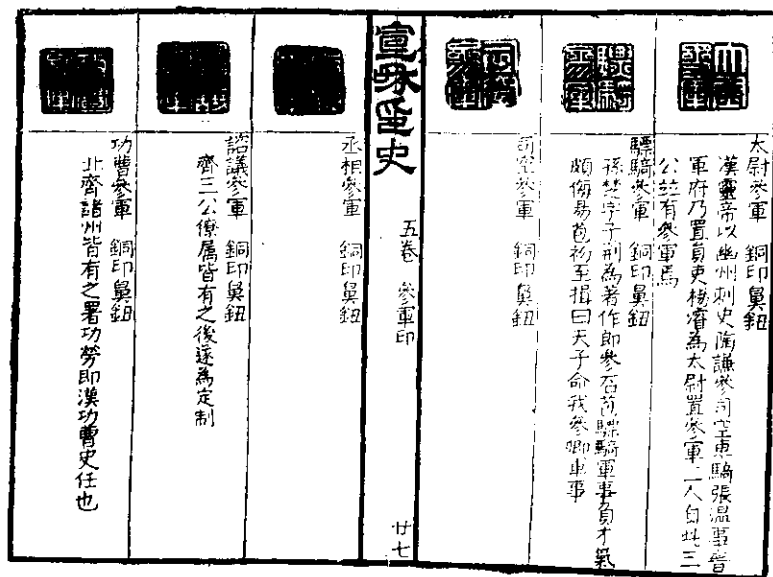 太尉參軍　銅印鼻鈕
漢靈帝以幽州刺史陶謙參司空車騎張溫事晉
軍府乃置員吏楊濟為太尉置參軍二人自此三
公並有參軍焉
驃騎參軍　銅印鼻鈕
孫楚字子荆為著作郎參石苞驃騎軍事負才氣
頗侮易苞初至揖曰天子命我參卿軍事
司空參軍　銅印鼻鈕
宣和印史　五卷　參軍印　廿七
丞相參軍　銅印鼻鈕
諮議參軍　銅印鼻鈕
齊三公僚属皆有之後遂為定制
功曹參軍　銅印鼻鈕
北齊諸州皆有之署功勞即漢功曹史任也